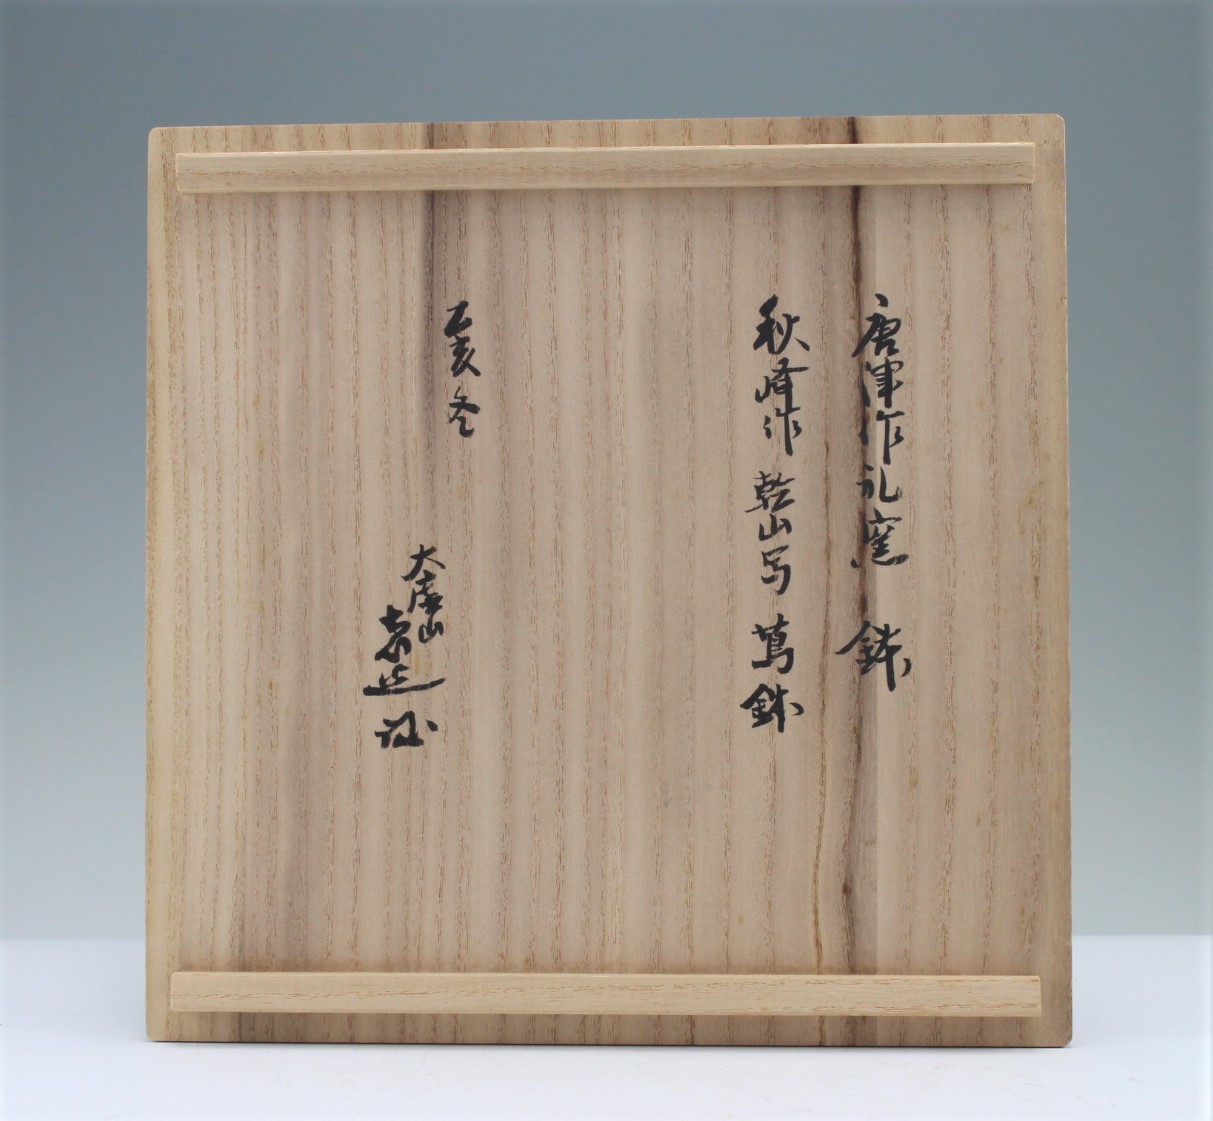 唐津作礼窯 鉢
秋峰作 乾山写 蔦鉢
乙亥冬
大虚山